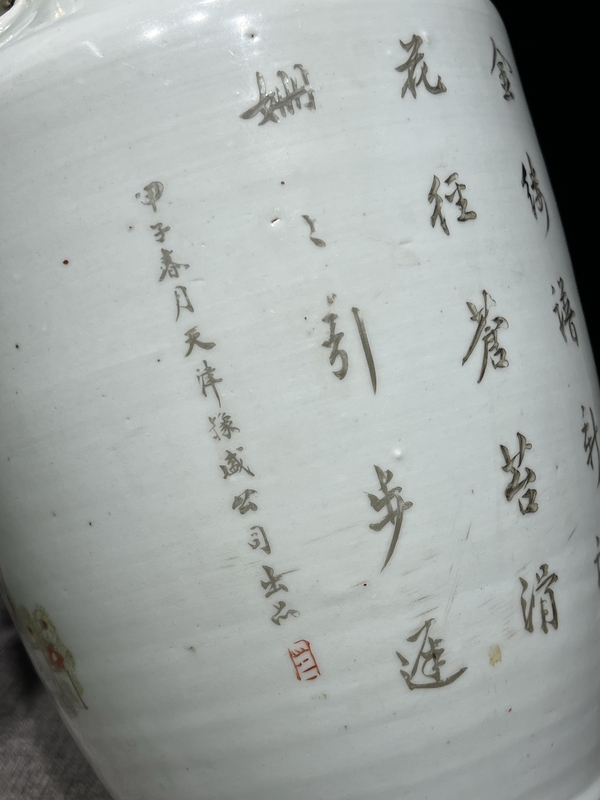 金譜新
花徑蒼苔滑
姍〻引步遲
甲子春月天津豫盛公司出品